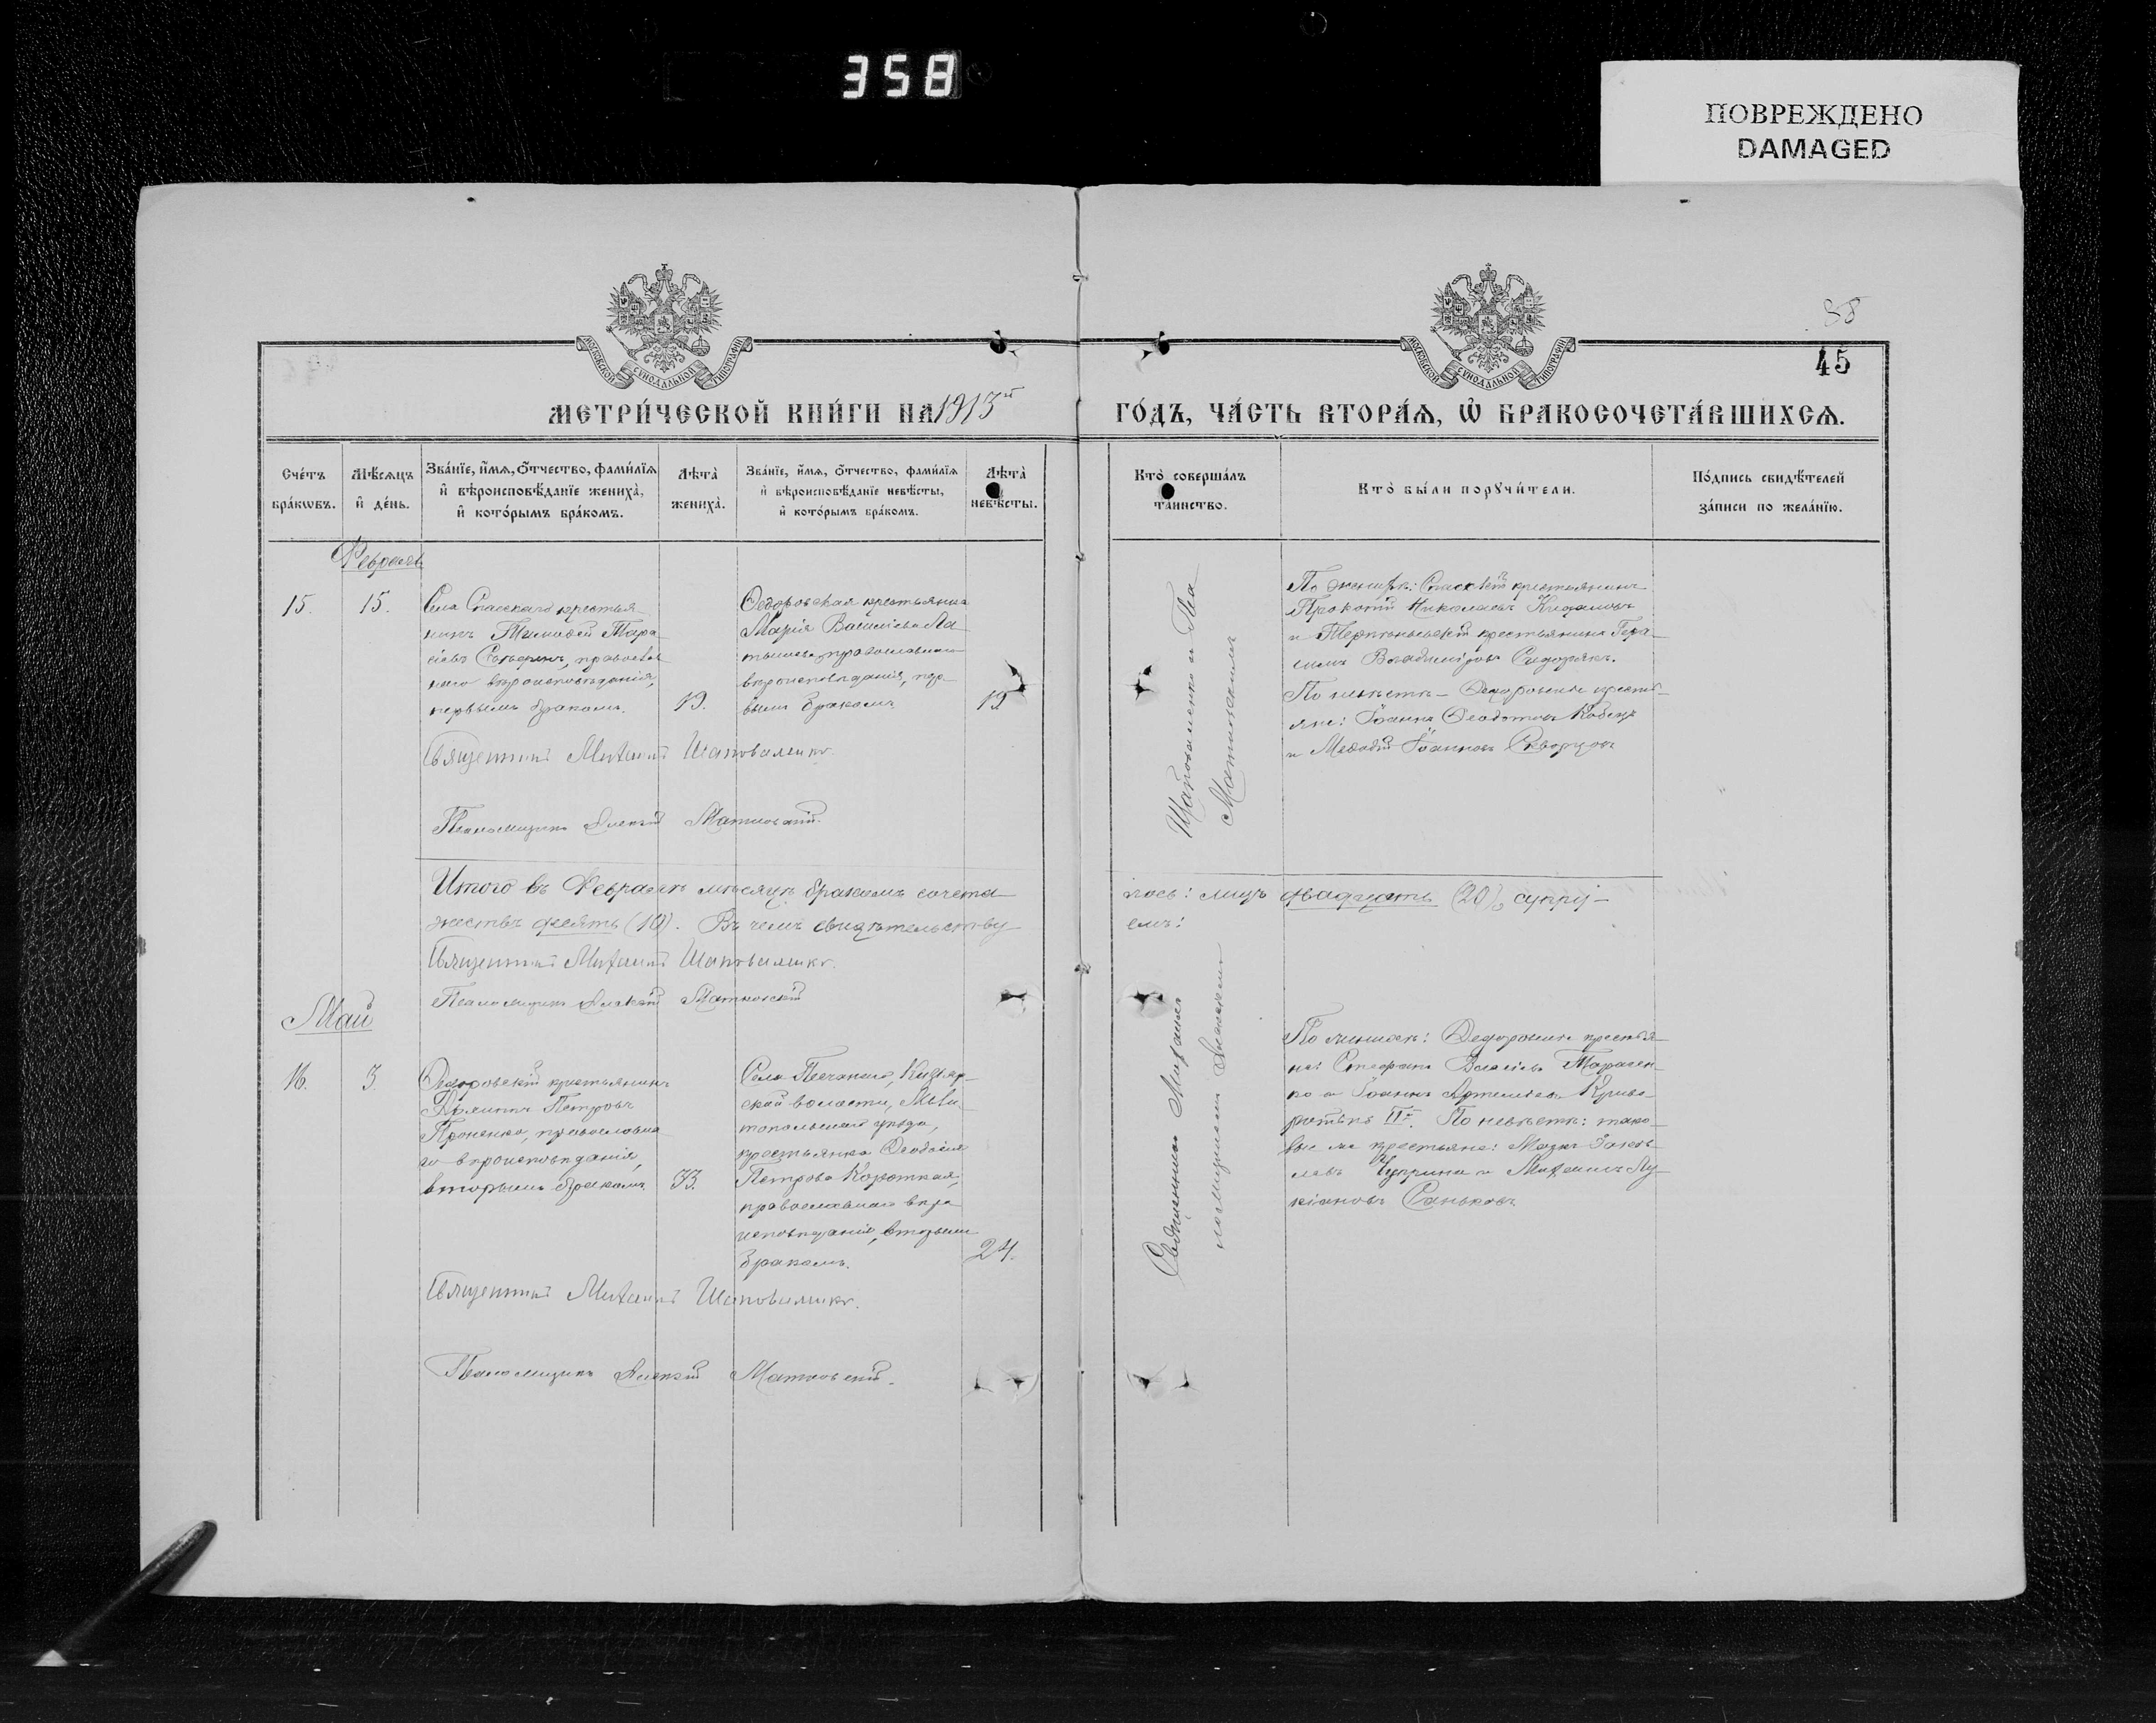 358
ПОВРЕЖДЕНО
DAMAGED
58
45
МОСКОВСКОЙ СѴНОДАЛЬНОЙ ТИПОГРАФІИ
МОСКОВСКОЙ СѴНОДАЛЬНОЙ ТИПОГРАФІИ
МЕТРИ́ЧЕСКОЙ КНИ́ГИ НА 1913й ГО́ДЪ, ЧА́СТЬ ВТОРА́Я, Ѡ БРАКОСОЧЕТА́ВШИХСѦ.
Сче́тъ бра́кѡвъ.
Мѣ́сѧцъ и де́нь.
Зва́нїе, и́мѧ, ѻ́тчество, фами́лїѧ и вѣроисповѣ́данїе жениха̀, и кото́рымъ бра́комъ.
Лѣта̀ жениха̀.
Зва́нїе, и́мѧ, ѻ́тчество, фами́лїѧ и вѣроисповѣ́данїе невѣ́сты, и кото́рымъ бра́комъ.
Лѣта̀ невѣ́сты.
Кто̀ соверша́лъ та́инство.
Кто̀ бы́ли порꙋчи́тели.
По́дпись свидѣ́телей за́писи по жела́нїю.
Февраль
15.
15.
Села Спасскаго крестья
нинъ Тимофей Тара
сіевъ православ
наго вѣроисповѣданія,
первымъ бракомъ.
19.
Ѳедоровская крестьянка
Марія Василіева Ла
тышева, православнаго
вѣроисповѣданія, пер
вымъ бракомъ
19
Шаповаленко и Пса
По женихѣ: Спасскій крестьянинъ
Прокопій Николаевъ
и Терпѣньевскій крестьянинъ Гера
симъ Владиміровъ Сидорякъ.
По невѣстѣ – Ѳедоровскіе кресть
яне: Іоаннъ Ѳеодотовъ
и Меѳодій Іоанновъ Скворцовъ
Священникъ Михаилъ Шаповаленко.
Псаломщикъ Алексій Матковскій.
Итого въ Февралѣ мѣсяцѣ бракомъ сочета
лось: лицъ двадцать (20), супру–
жествъ десять (10). Въ чемъ свидѣтельству
емъ:
Священникъ Михаилъ Шаповаленко.
Псаломщикъ Алексій Матковскій
Май
16.
3.
Ѳедоровскій крестьянинъ
Петровъ
Проненко, православна
го вѣроисповѣданія,
вторымъ бракомъ
33.
Села Песчанаго,
ской волости, Мели
топольскаго уѣзда,
крестьянка Ѳеодосія
Петрова Короткая,
православнаго вѣро
исповѣданія, вторымъ
бракомъ.
24.
Священникъ Михаилъ
По женихѣ: Ѳедоровскіе крестья
не: Стефанъ Василіевъ Тарасен
ко и Іоаннъ Артеміевъ Криво
ротько IIй. По невѣстѣ: тако
вые же крестьяне:
Чуприна и Михаилъ Лу
кіановъ Саньковъ.
Священникъ Михаилъ Шаповаленко.
Псаломщикъ Алексій Матковскій.